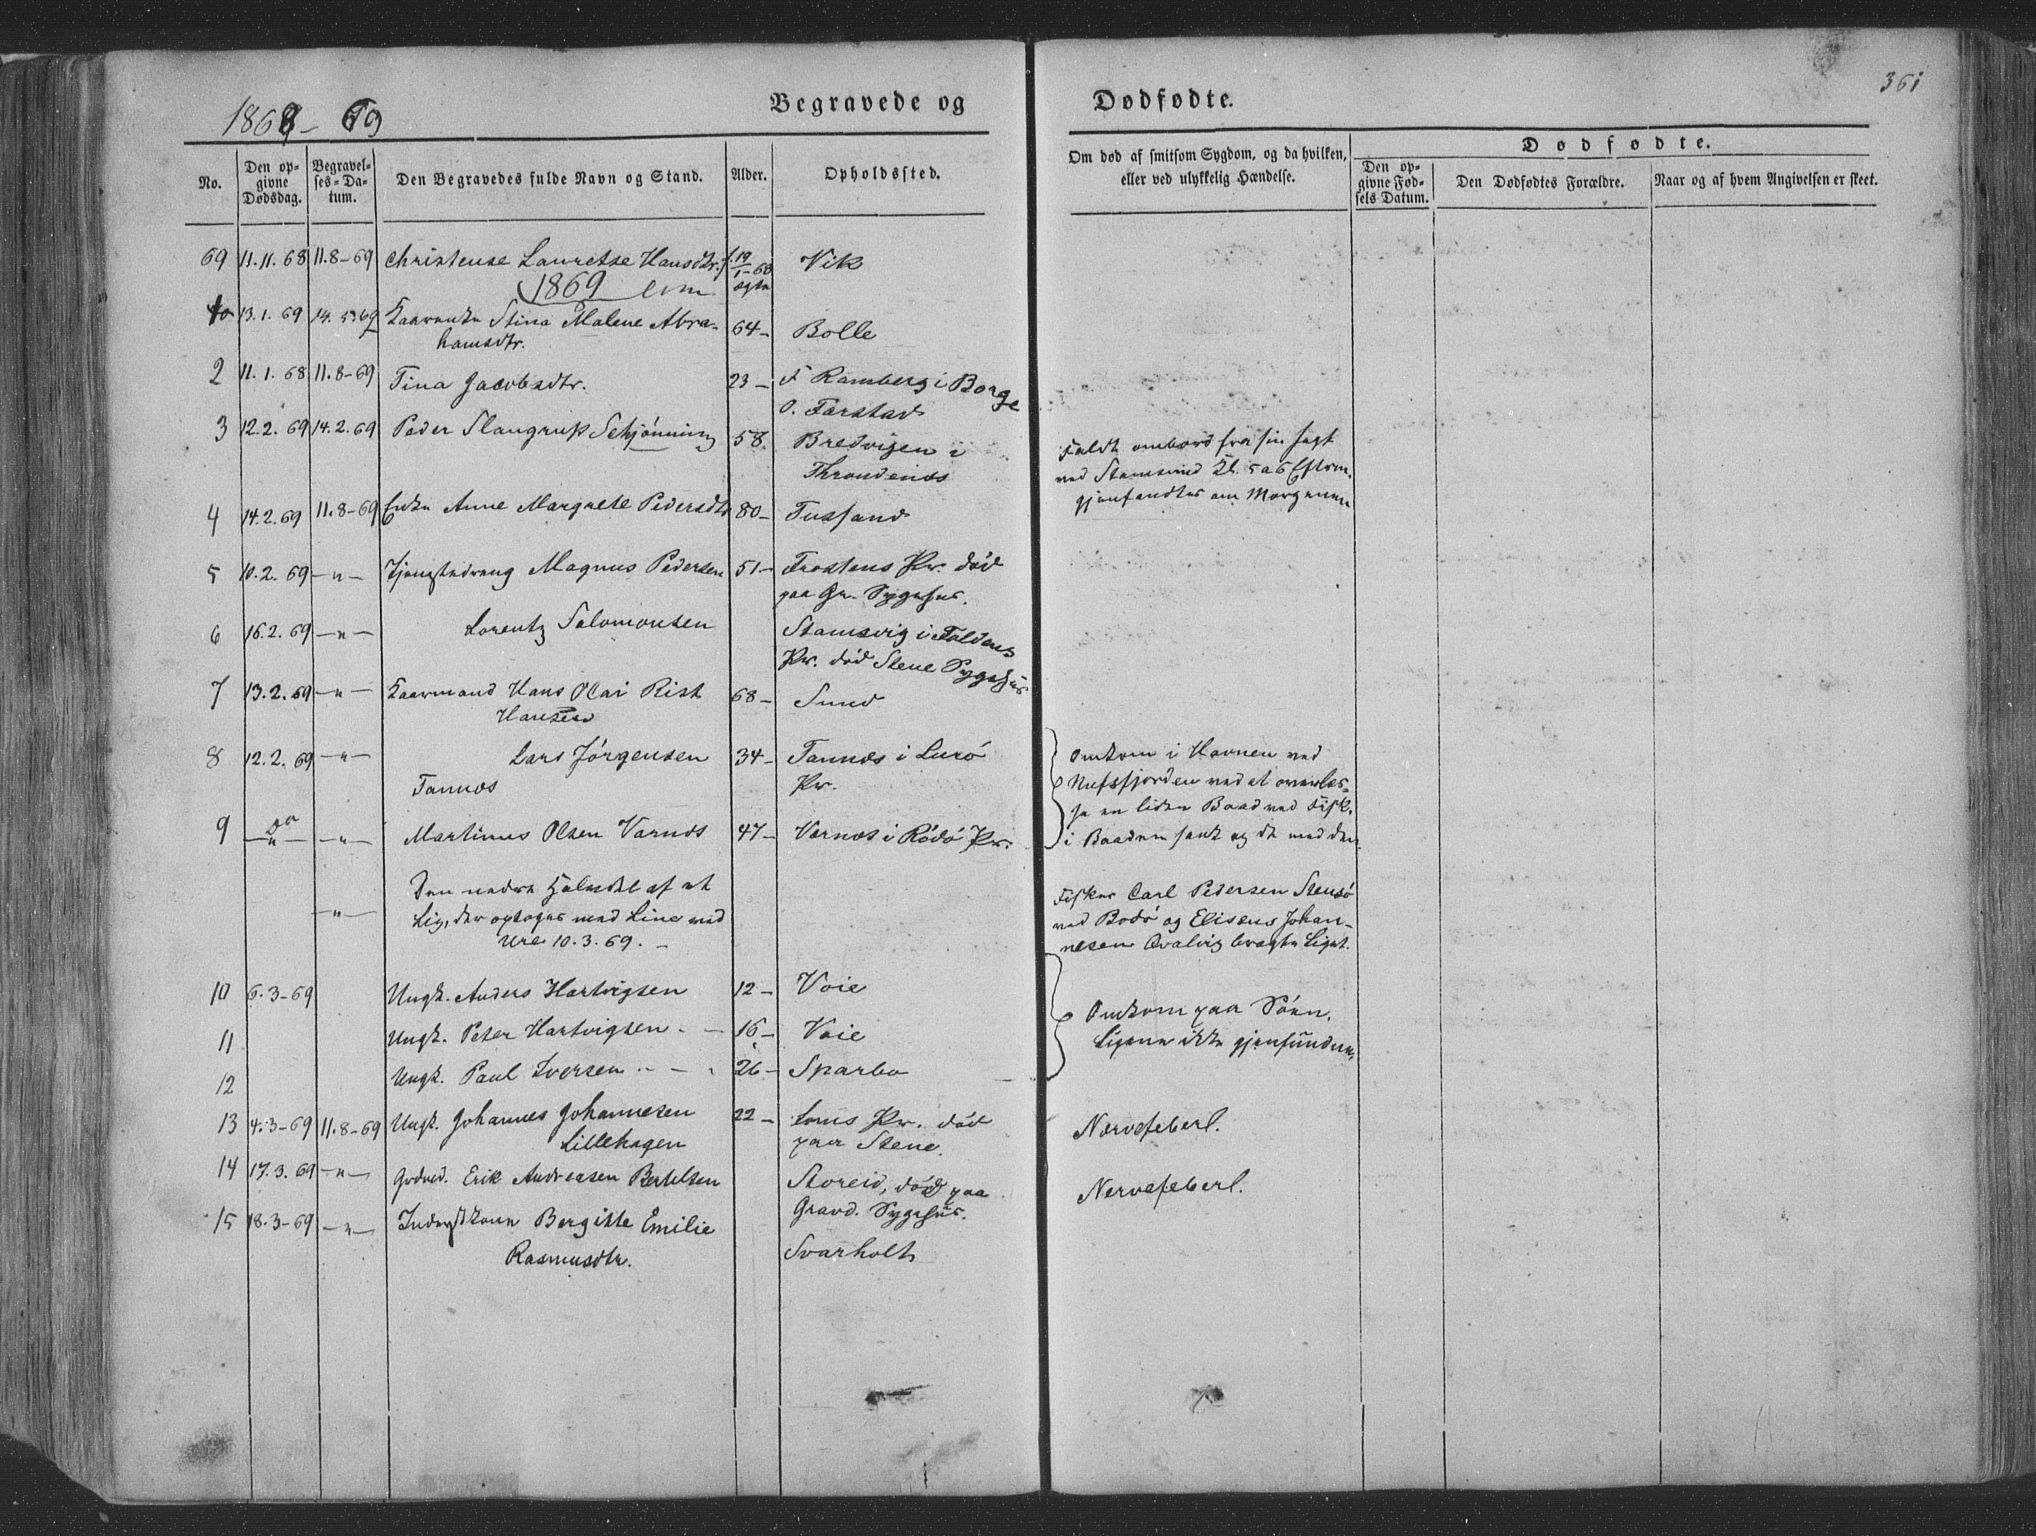 1868-69
Begravede og
Dødfødte.
361
No.
Den op-
givne
Dødsdag.
Begravel-
ses-Da-
tum.
Den Begravedes fulde Navn og Stand.
Alder.
Opholdssted.
Om død af smitsom Sygdom, og da hvilken,
eller ved ulykkelig Hændelse.
Dødfødte.
Den op-
givne Fød-
sels Datum.
Den Dødfødtes Forældre.
Naar og af hvem Angivelsen er skeet.
69 11.11.68 11.8-69 Christense Lauretse Hansdtr. f. 19/1-68 ægte Vik
1869
13.1.69 14.5.69 Kaarenke Stina Malene Abra-
hamsdtr. 64- Bolle
2 11.1.68 11.8-69 Tina Jacobsdtr. 23- F Ramberg i Borge
O. Farstad
3 12.2.69 14.2.69 Peder Slangrup Schjönning 58. Bredvigen i
Throndenæs
Faldt ombord fra sin Jagt
ved Stamsund Kl. 5 a 6 Efterm
gjenfandtes om Morgenen
4 14.2.69 11.8-69 Enke Anne Margrete Pedersdtr 80- Tussand
5 10.2.69 -"- Tjenestedreng Magnus Pedersen 51- Frostens Pr. død
paa Gr. Sygehus.
6 16.2.69 -"- Lorentz Salomonsen Stamsvig i Foldens
Pr. død Stene Sygehus
7 13.2.69 -"- Kaarmand Hans Olai Rist
Hansen 68- Sund
8 12.2.69 -"- Lars Jörgensen
Tannæs 34- Tannæs i Lurö
Pr.
Omkom i Havnen ved
Nufsfjorden ved at overlæs-
se en liden Baad ved Fisk.
i Baaden sank og de med den
9 Do -"- -"- Martinus Olsen Varnæs 47- Værnæs i Rödö Pr.
-"- Den nedre Halvdel af et
Lig, der optoges med Line ved
Ure 10.3.69. -
Fisker Carl Pedersen Stensö
ved Bodö og Elisens Johan-
nesen Qvalvig bragte Liget.
10 6.3-69 Ungk. Anders Hartvigsen 12- Voie
11 Ungk. Peter Hartvigsen 16- Voie
12 Ungk. Paul Iversen 26- Sparbo
Omkom paa Söen,
Ligene ikke gjenfundne.
13 4.3-69 11.8-69 Ungk. Johannes Johannesen
Lillehagen 22- Loms Pr. død
paa Stene.
Nervefeberl.
14 17.3.69 -"- Erik Andreasen Bertelsen Storeid, død paa
Gravd. Sygehus.
Nervefeberl.
15 18.3-69 -"- Inderstkone Bergitte Emilie
Rasmusdtr. Svarholt